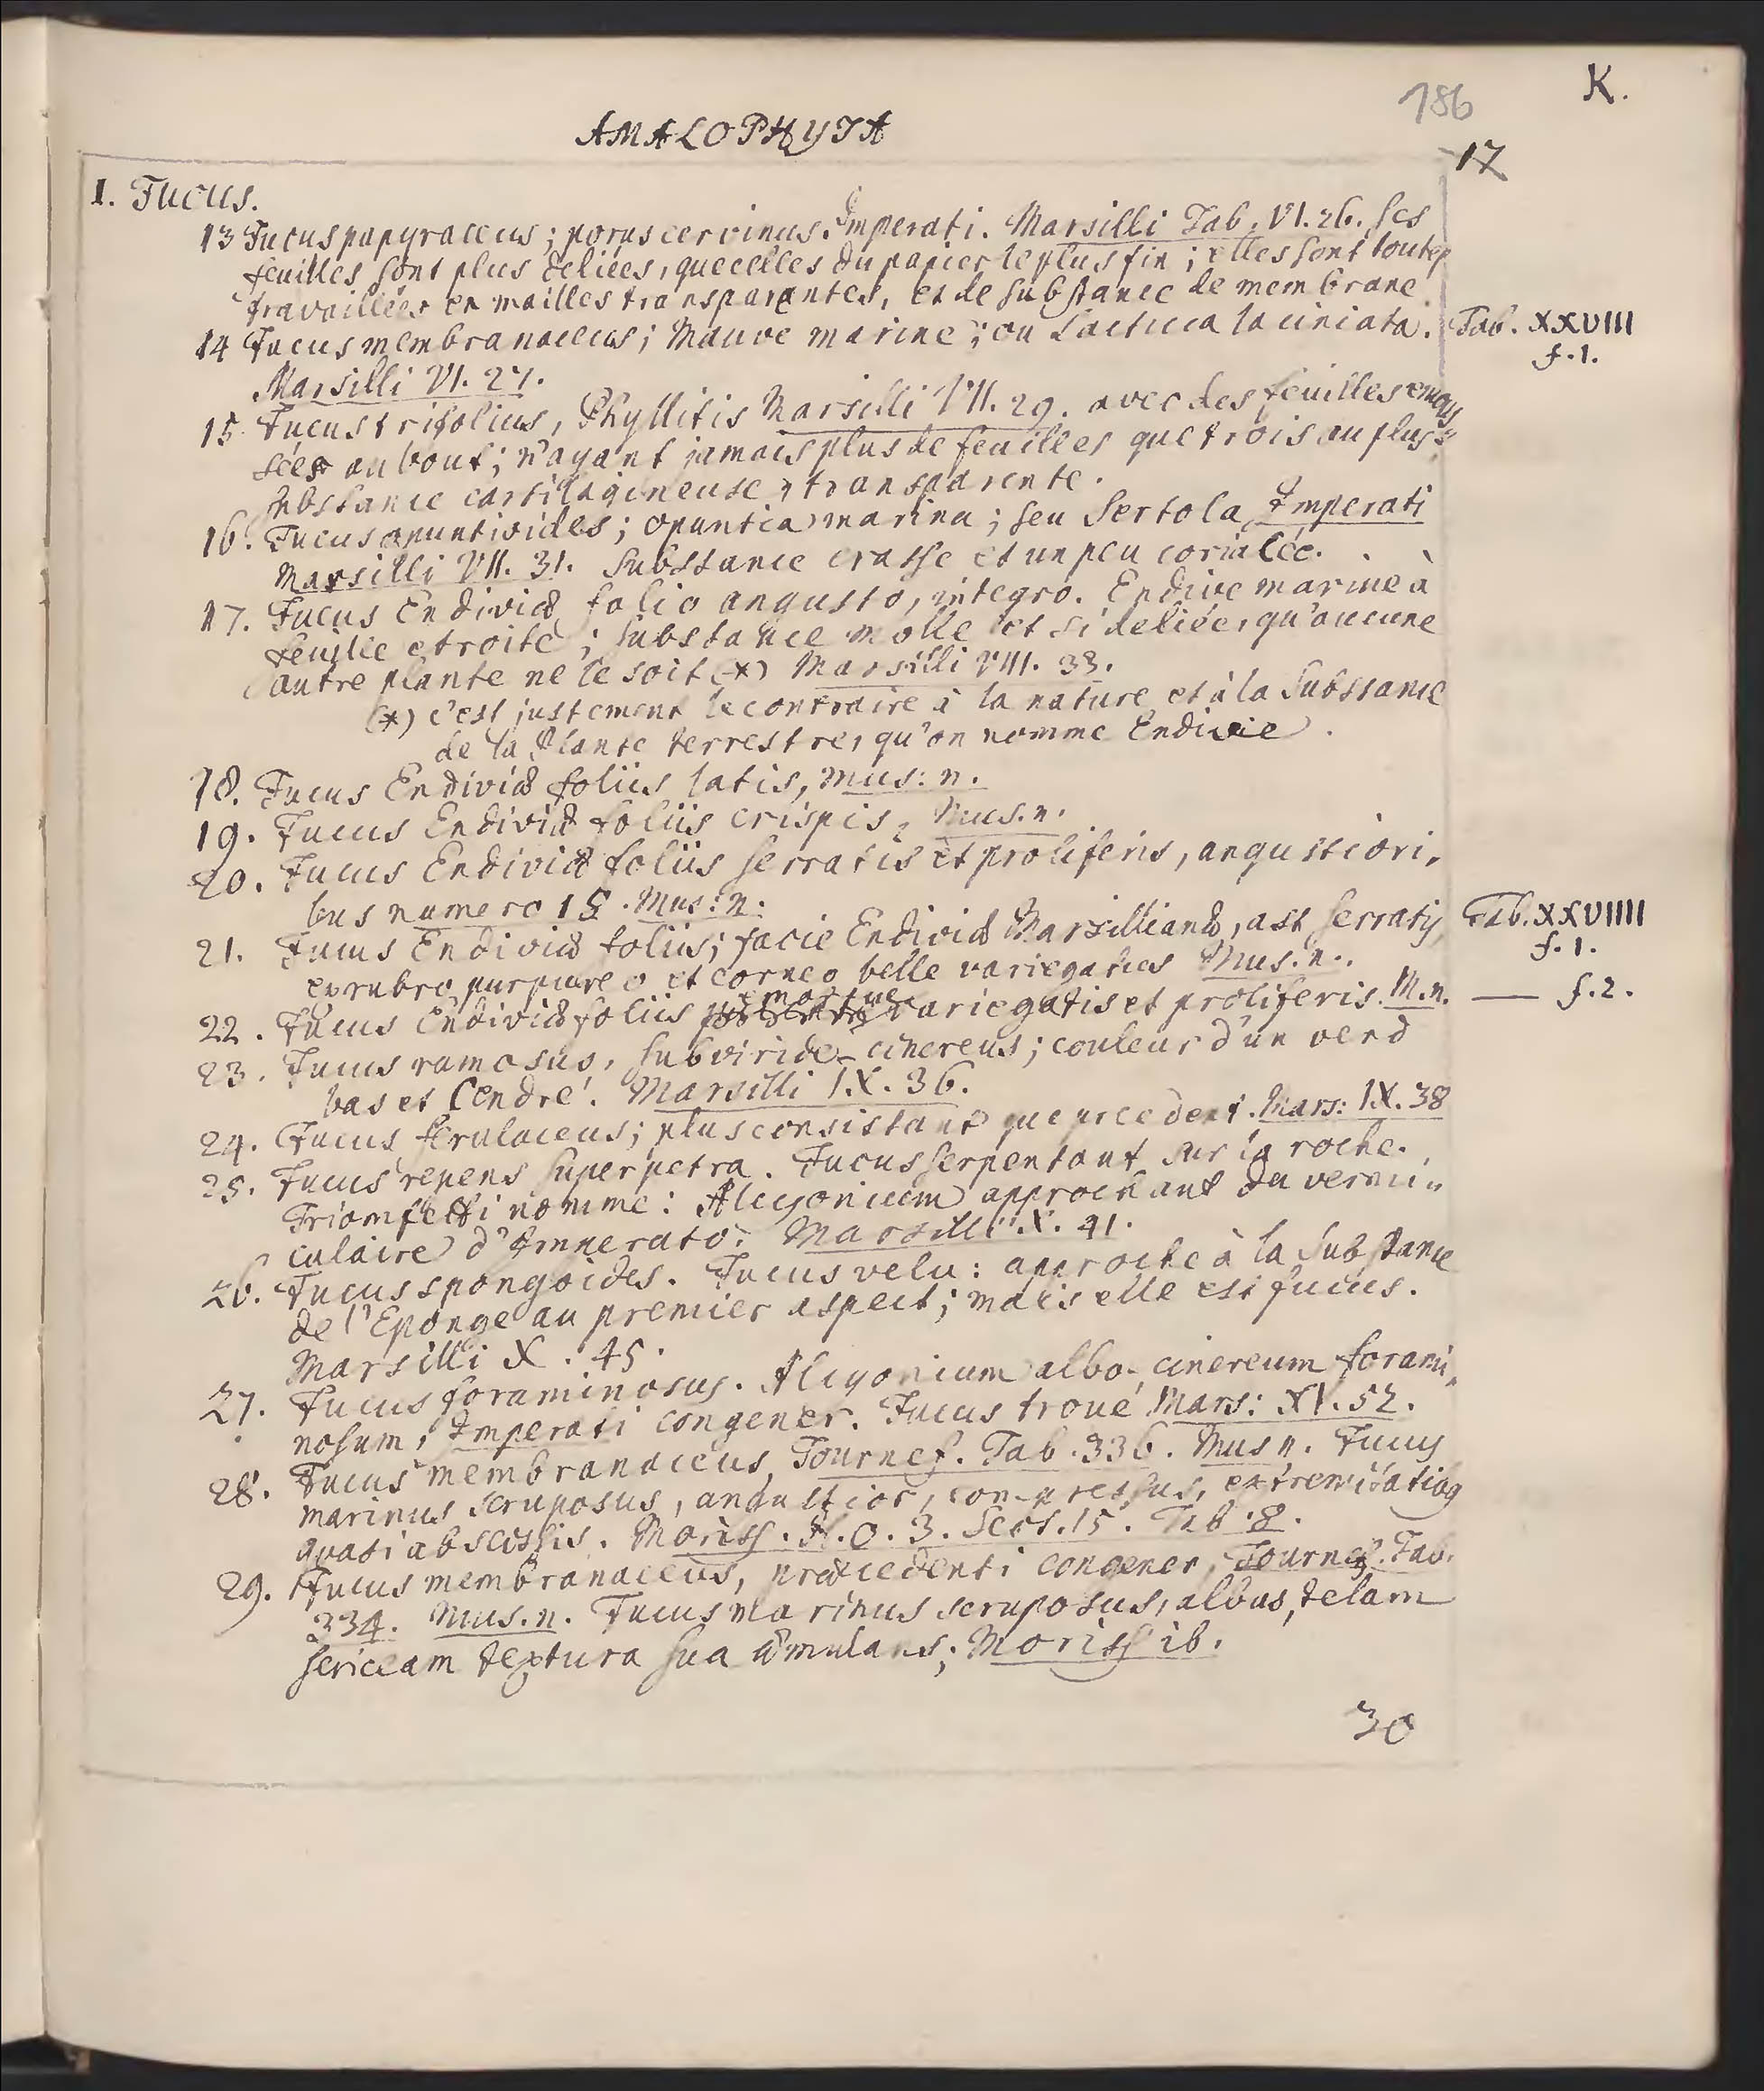 186
K.
AMALOPHYTA
17
I. Fucus.
13 Fucus papyraceus; porus cervinus Imperati. Marsilli Tab. VI. 26. ses
feuilles sont plus deliées, que celles du papier le plus fin; elles sont toutes
travaillées en mailles transparantes, et de substance de membrane
14 Fucus membranaceus; Mauve marine; ou Lactuca laciniata. Tab. XXVIII
f. 1.
Marsilli VI. 27.
15. Fucus trifolius, Phyllitis Marsilli VII. 29. avec des feuilles emous
sées au bout; n'ayant jamais plus de feuilles que trois au plus;
substance cartilagineuse, transparente.
16. Fucus opuntioides; opuntia marina; seu Sertola Imperati
Marsilli VII. 31. Substance crasse et un peu corialée.
17. Fucus Endiviæ folio angusto, integro. Endive marine à
feuille etroite; substance molle et si deliée, qu'aucune
autre plante ne le soit (*) Marsilli VIII. 33.
(*) c'est justement le contraire à la nature et à la substance
de la Plante terrestre, qu'on nomme Endivie.
18. Fucus Endiviæ foliis latis, Mus: n.
19. Fucus Endiviæ foliis crispis, Mus. n.
20. Fucus Endiviæ foliis serratis et proliferis, angustiori,
bus numero 18. Mus: n.
21. Fucus Endiviæ foliis; facie Endiviæ Marsillianæ, ast serratis, Tab. XXVIIII
f. 1.
ex rubro purpureo et corneo belle variegatus Mus. n.
22. Fucus Endiviæ foliis variegatis et proliferis. M. n. — f. 2.
23. Fucus ramosus, subviride-cinereus; couleur d'un verd
bas et Cendré. Marsilli IX. 36.
24. Fucus ferulaceus; plus consistant que precedent. Mars: IX. 38
25. Fucus repens super petra. Fucus serpentant sur la roche.
Triomfetti nomme: Alcyonium approchant du vermi„
culaire d'Imperato: Marsilli X. 41.
26. Fucus spongoides. Fucus velu: approche à la substance
de l'Eponge au premier aspect; mais elle est fucus.
Marsilli X. 45.
27. Fucus foraminosus. Alcyonium albo-cinereum forami„
nosum, Imperati congener. Fucus troué Mars: XV. 52.
28. Fucus membranaceus, Tournef. Tab. 336. Mus n. Fucus
marinus scruposus, angustior, compressus, extremitatibq
quasi abscissis. Moriss. H. O. 3. Sect. 15. Tab. 8.
29. Fucus membranaceus, præcedenti congener, Tournef. Tab.
334. Mus. n. Fucus marinus scruposus, albus, telam
sericeam textura sua æmulans; Moriss ib.
30